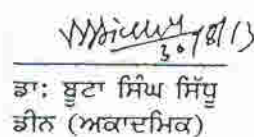 30/8/13
ਡਾ: ਬੂਟਾ ਸਿੰਘ ਸਿੱਧੂ
ਡੀਨ (ਅਕਾਦਮਿਕ)